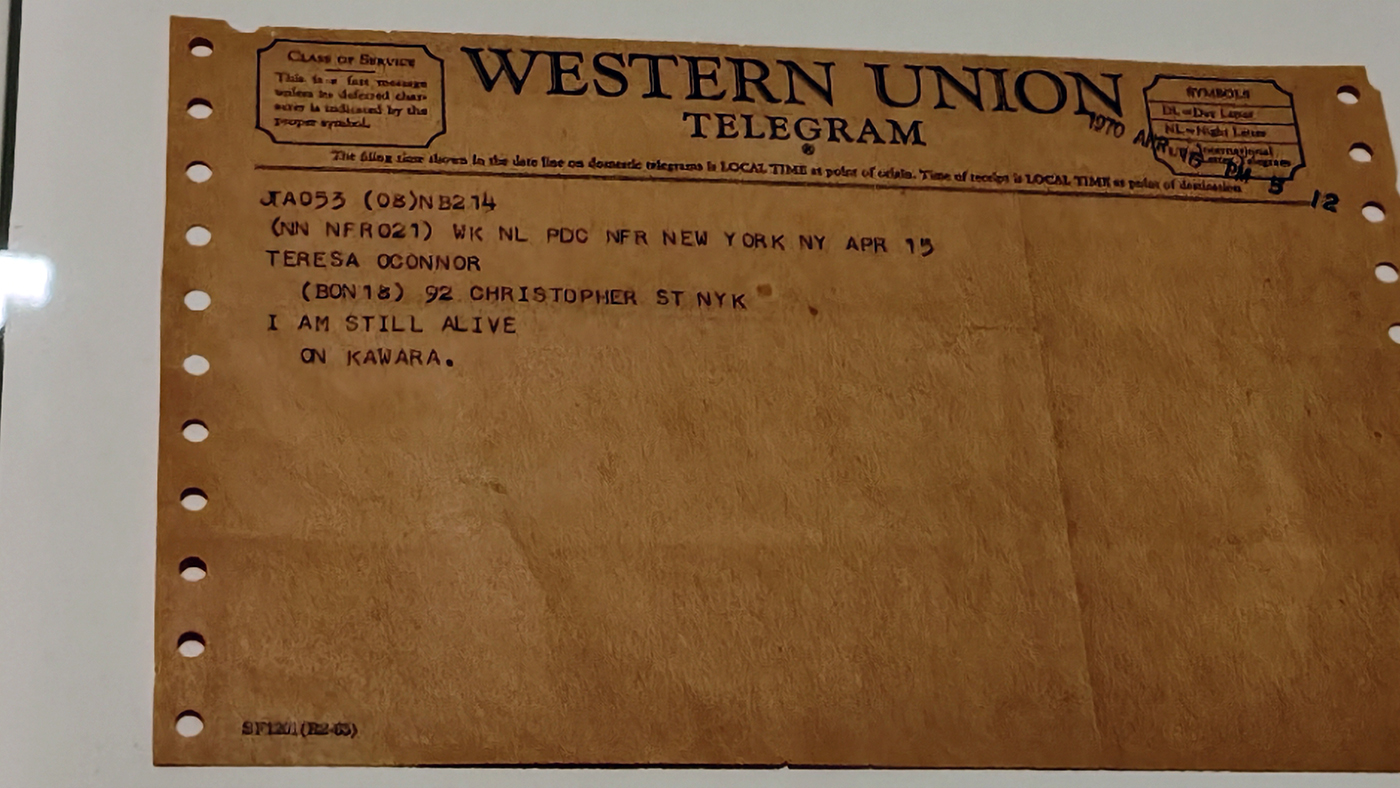 CLASS OF SERVICE
This is a fast message
unless its deferred char-
acter is indicated by the
proper symbol.
WESTERN UNION
TELEGRAM
®
SYMBOLS
DL=Day Letter
NL=Night Letter
LT=International
Letter Telegram
1970 APR PM 5 12
The filing time shown in the date line on domestic telegrams is LOCAL TIME at point of origin. Time of receipt is LOCAL TIME at point of destination
JTA053 (08)NB214
(NN NFR021) WK NL PDC NFR NEW YORK NY APR 15
TERESA OCONNOR
(BON18) 92 CHRISTOPHER ST NYK
I AM STILL ALIVE
ON KAWARA.
SF1201(R2-65)